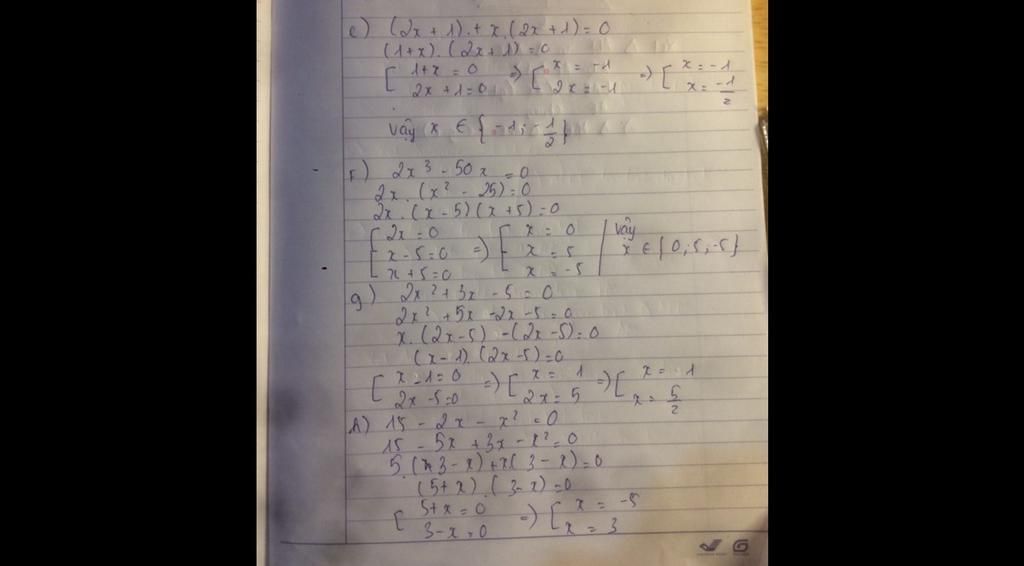 e) (2x + 1) + x.(2x + 1) = 0
(1+x).(2x+1) = 0
[ 1+x = 0 => [ x = -1 => [ x = -1
2x + 1 = 0 2x = -1 x = -1/2
Vậy x ∈ { -1; -1/2 }
f) 2x³ - 50x = 0
2x.(x² - 25) = 0
2x.(x - 5)(x + 5) = 0
[ 2x = 0 => [ x = 0 | Vậy
x - 5 = 0 x = 5 x ∈ { 0; 5; -5 }
x + 5 = 0 x = -5
g) 2x² + 3x - 5 = 0
2x² + 5x - 2x - 5 = 0
x.(2x - 5) - (2x - 5) = 0
(x - 1).(2x - 5) = 0
[ x - 1 = 0 => [ x = 1 => [ x = 1
2x - 5 = 0 2x = 5 x = 5/2
h) 15 - 2x - x² = 0
15 - 5x + 3x - x² = 0
5.(3 - x) + x(3 - x) = 0
(5 + x).(3 - x) = 0
[ 5 + x = 0 => [ x = -5
3 - x = 0 x = 3